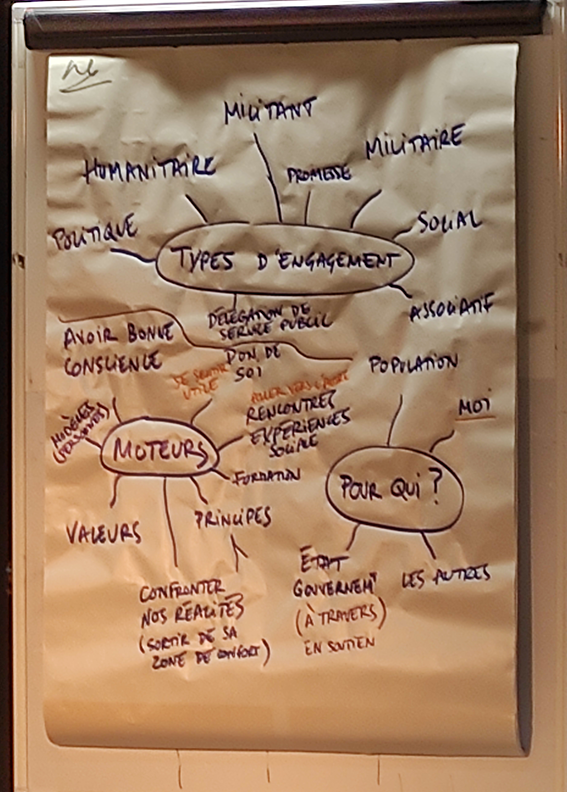 MILITANT
HUMANITAIRE
PROMESSE
MILITAIRE
POLITIQUE
SOCIAL
TYPES D'ENGAGEMENT
ASSOCIATIF
DÉLÉGATION DE
SERVICE PUBLIC
DON DE
SOI
AVOIR BONNE
CONSCIENCE
SE SENTIR
UTILE
MODÈLES
(PERSONNES)
MOTEURS
RENCONTRES
EXPÉRIENCES
SOCIALE
FORMATION
PRINCIPES
VALEURS
CONFRONTER
NOS RÉALITÉS
(SORTIR DE SA
ZONE DE CONFORT)
POPULATION
MOI
POUR QUI ?
ÉTAT
GOUVERNEMT
(À TRAVERS)
EN SOUTIEN
LES AUTRES